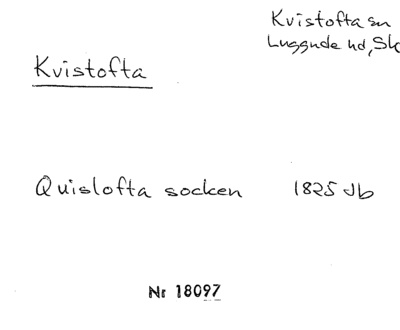 Kvistofta sn
Luggude hd, Sk
Kvistofta
Quislofta socken 1825 Jb
Nr 18097